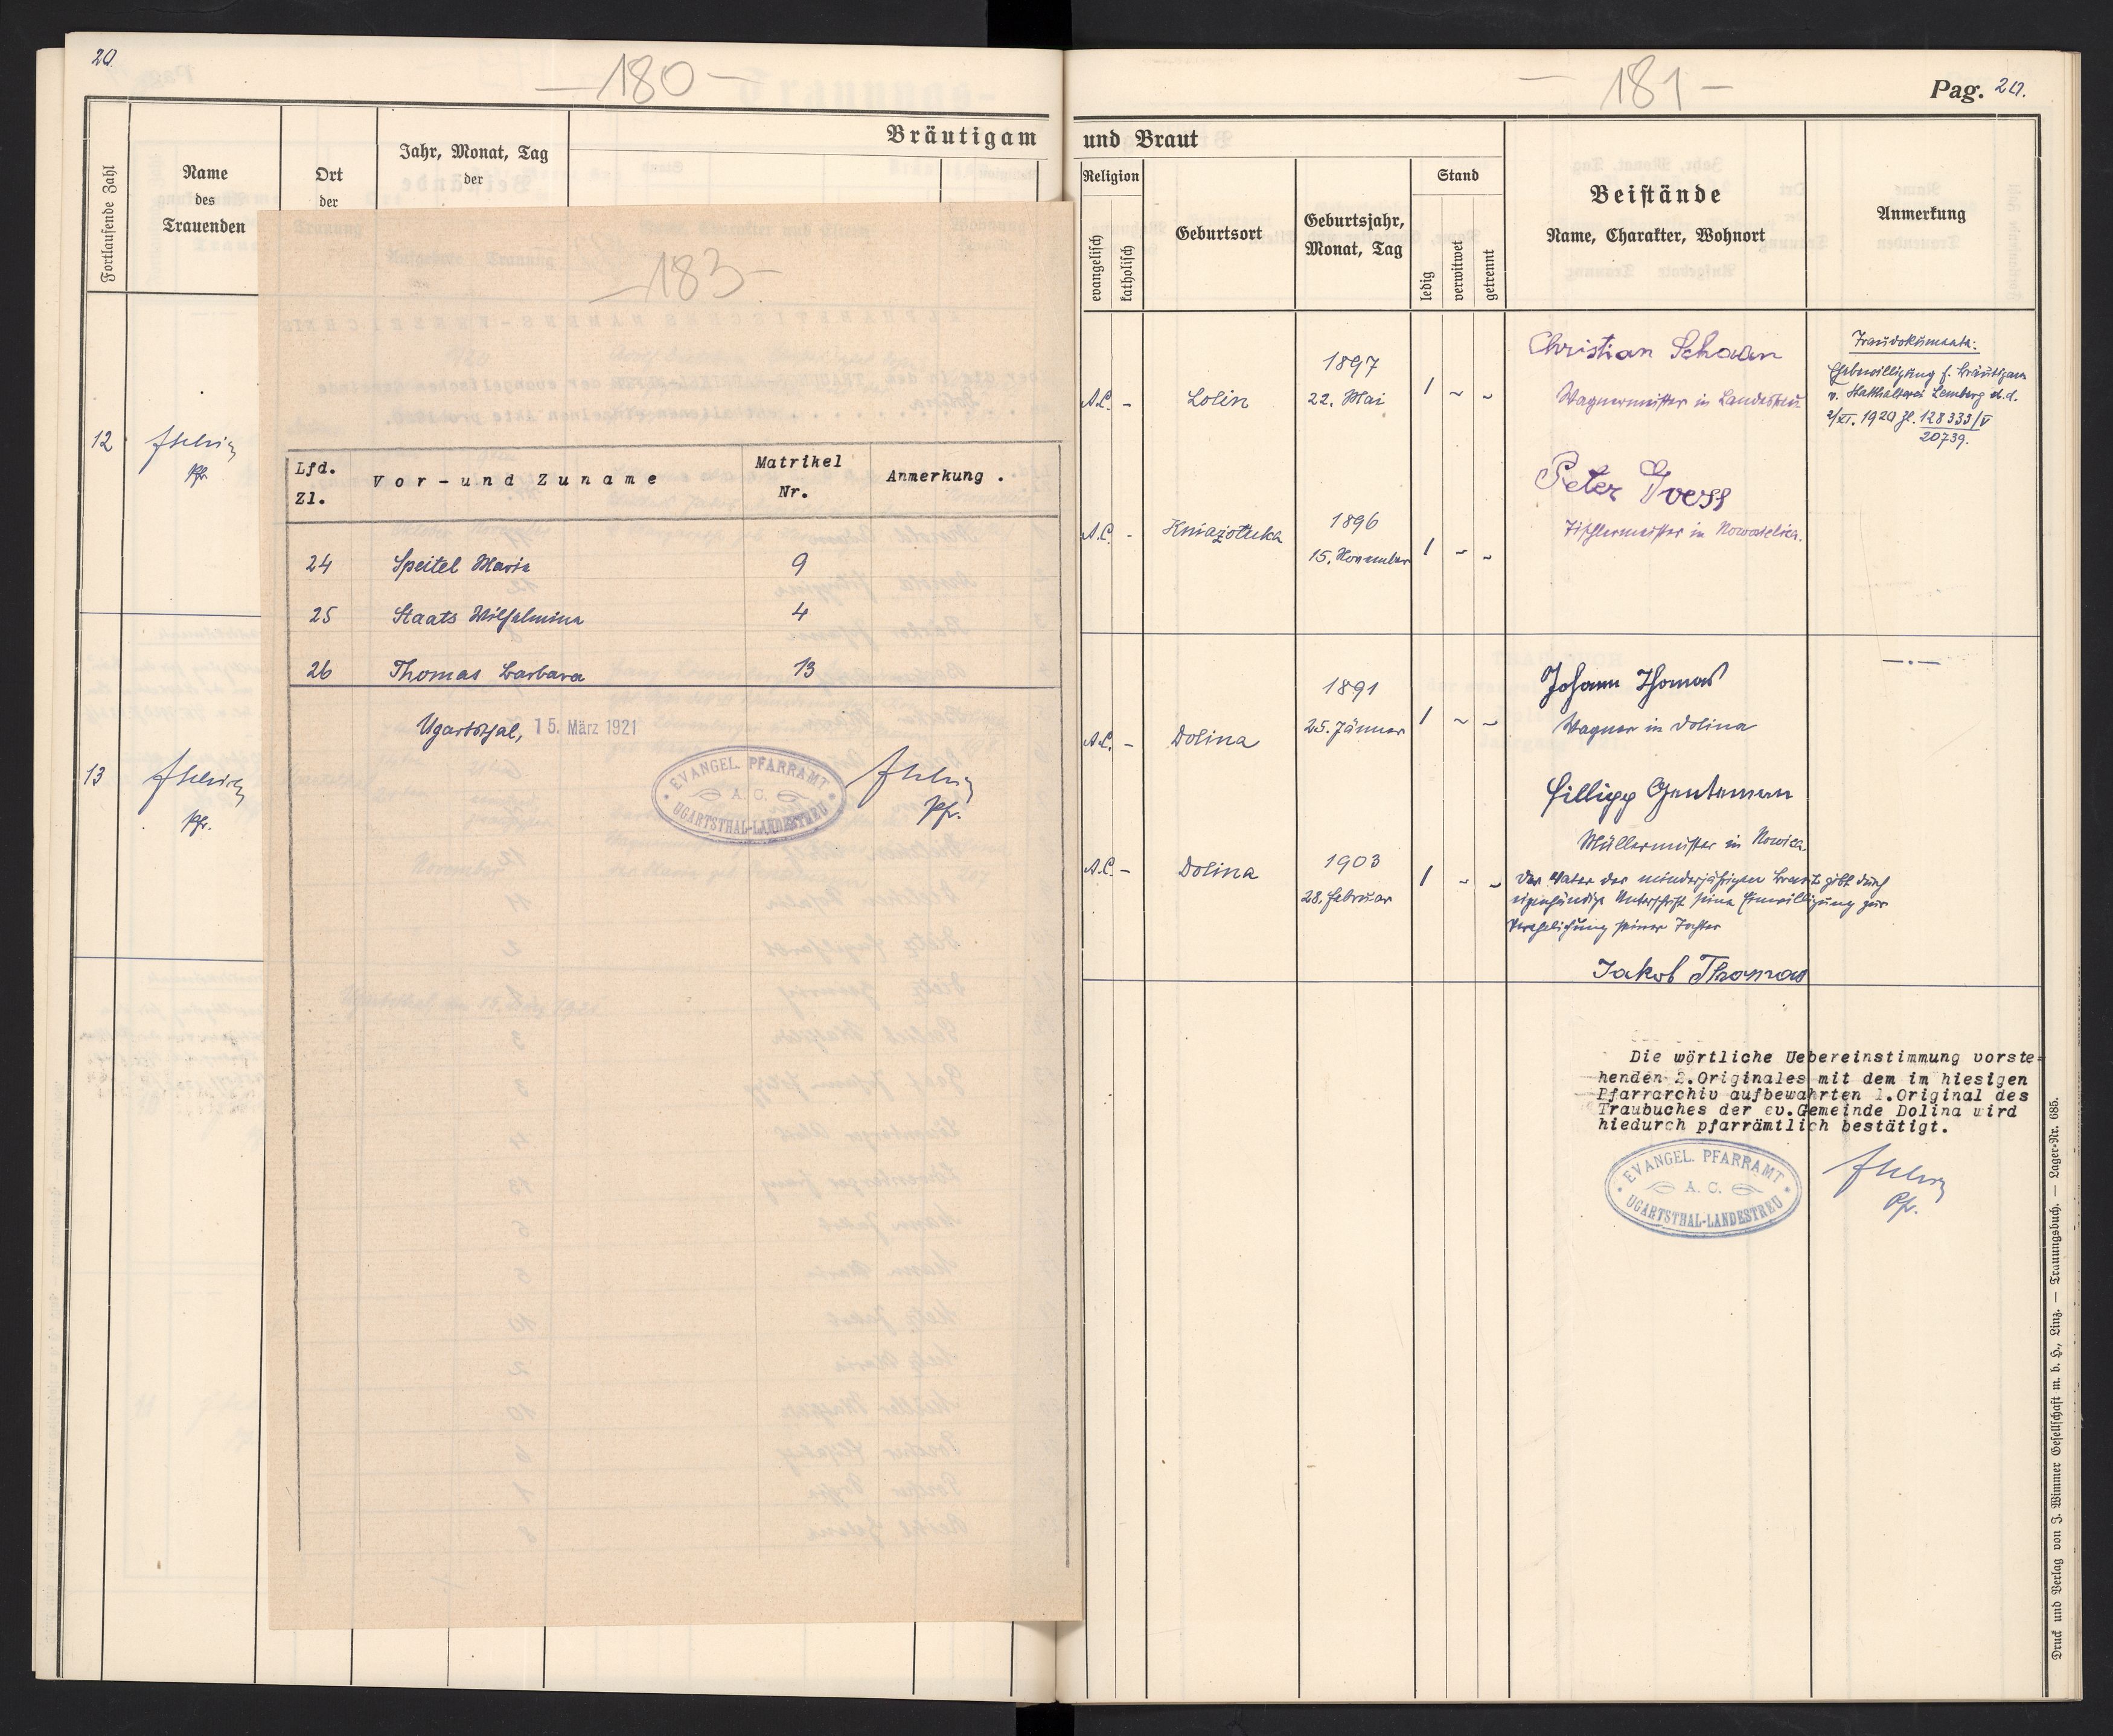 20.
— 180 —
Fortlaufende Zahl
Name
des
Trauenden
Ort
der
Jahr, Monat, Tag
der
Bräutigam
12
Pfr.
13
Pfr.
— 183 —
Lfd.
Zl.
Vor- und Zuname
Matrikel
Nr.
Anmerkung.
24 Speitel Maria 9
25 Staats Wilhelmina 4
26 Thomas Barbara 13
Ugartsthal, 15. März 1921
EVANGEL. PFARRAMT
A. C.
UGARTSTHAL-LANDESTREU
Pfr.
— 181 —
Pag. 20.
und Braut
Religion
evangelisch
katholisch
Geburtsort
Geburtsjahr,
Monat, Tag
Stand
ledig
verwitwet
getrennt
Beistände
Name, Charakter, Wohnort
Anmerkung
A.C. -
Lolin
1897
22. Mai
1 ~ ~
Christian Schwan
Wagnermeister in Landestreu
Traudokumente:
Ehebewilligung f. Bräutigam
v. Statthalterei Lemberg d.d.
2/XI. 1920 Zl. 128333/V
20739.
A.C. -
Kniazoluka
1896
15. November
1 - -
Peter
Tischlermeister in Nowosielica.
A.C. -
Dolina
1891
25. Jänner
1 ~ ~
Johann Thomas
Wagner in Dolina
—·—
Fillipp Genteman
Müllermeister in Nowica.
A.C. -
Dolina
1903
28. Februar
1 - -
Der Vater der minderjährigen Braut gibt durch
eigenhändige Unterschrift seine Einwilligung zur
Verehelichung seiner Tochter
Jakob Thomas
Die wörtliche Uebereinstimmung vorste=
henden 2.Originales mit dem im hiesigen
Pfarrarchiv aufbewahrten 1.Original des
Traubuches der ev.Gemeinde Dolina wird
hiedurch pfarrämtlich bestätigt.
EVANGEL. PFARRAMT
A. C.
UGARTSTHAL-LANDESTREU
Pfr.
Druck und Verlag von J. Wimmer Gesellschaft m. b. H., Linz. — Trauungsbuch. — Lager-Nr. 685.